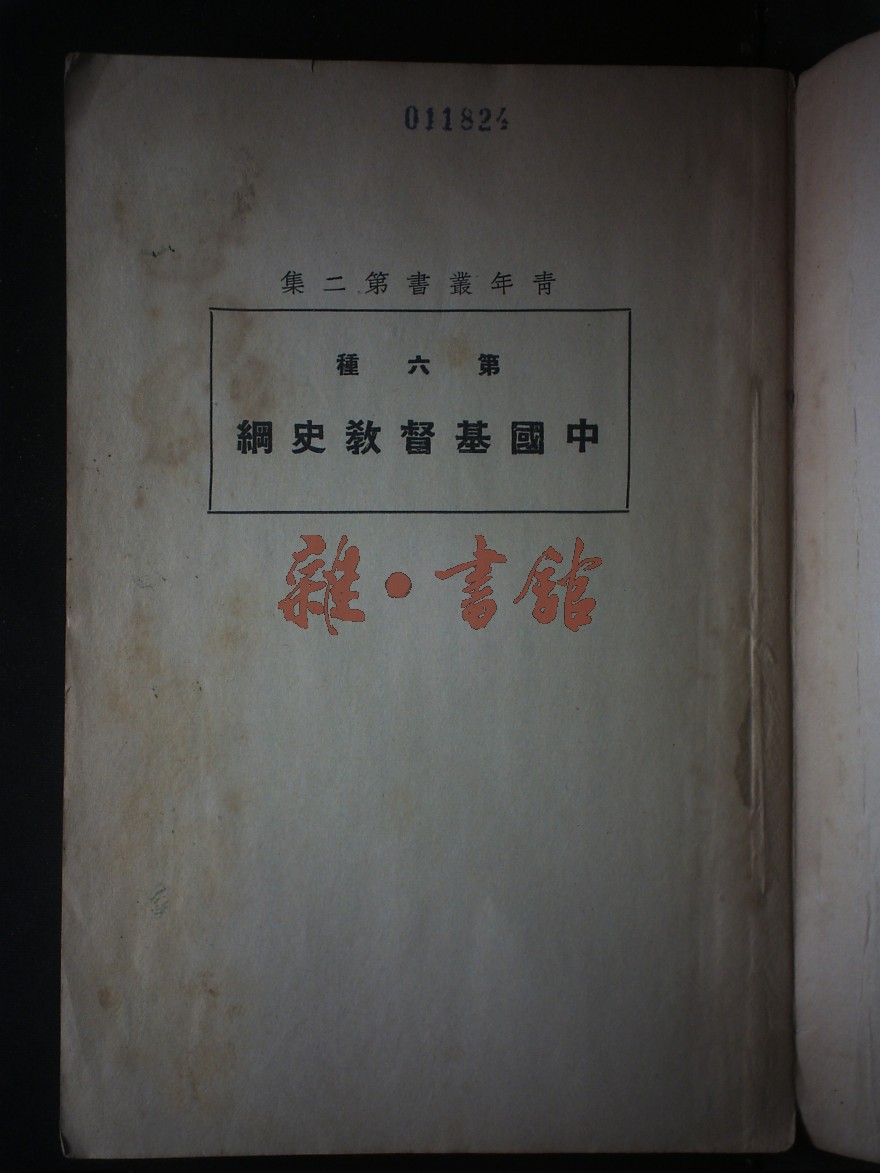 011824
靑年叢書第二集
第六種
中國基督教史綱
雜·書館